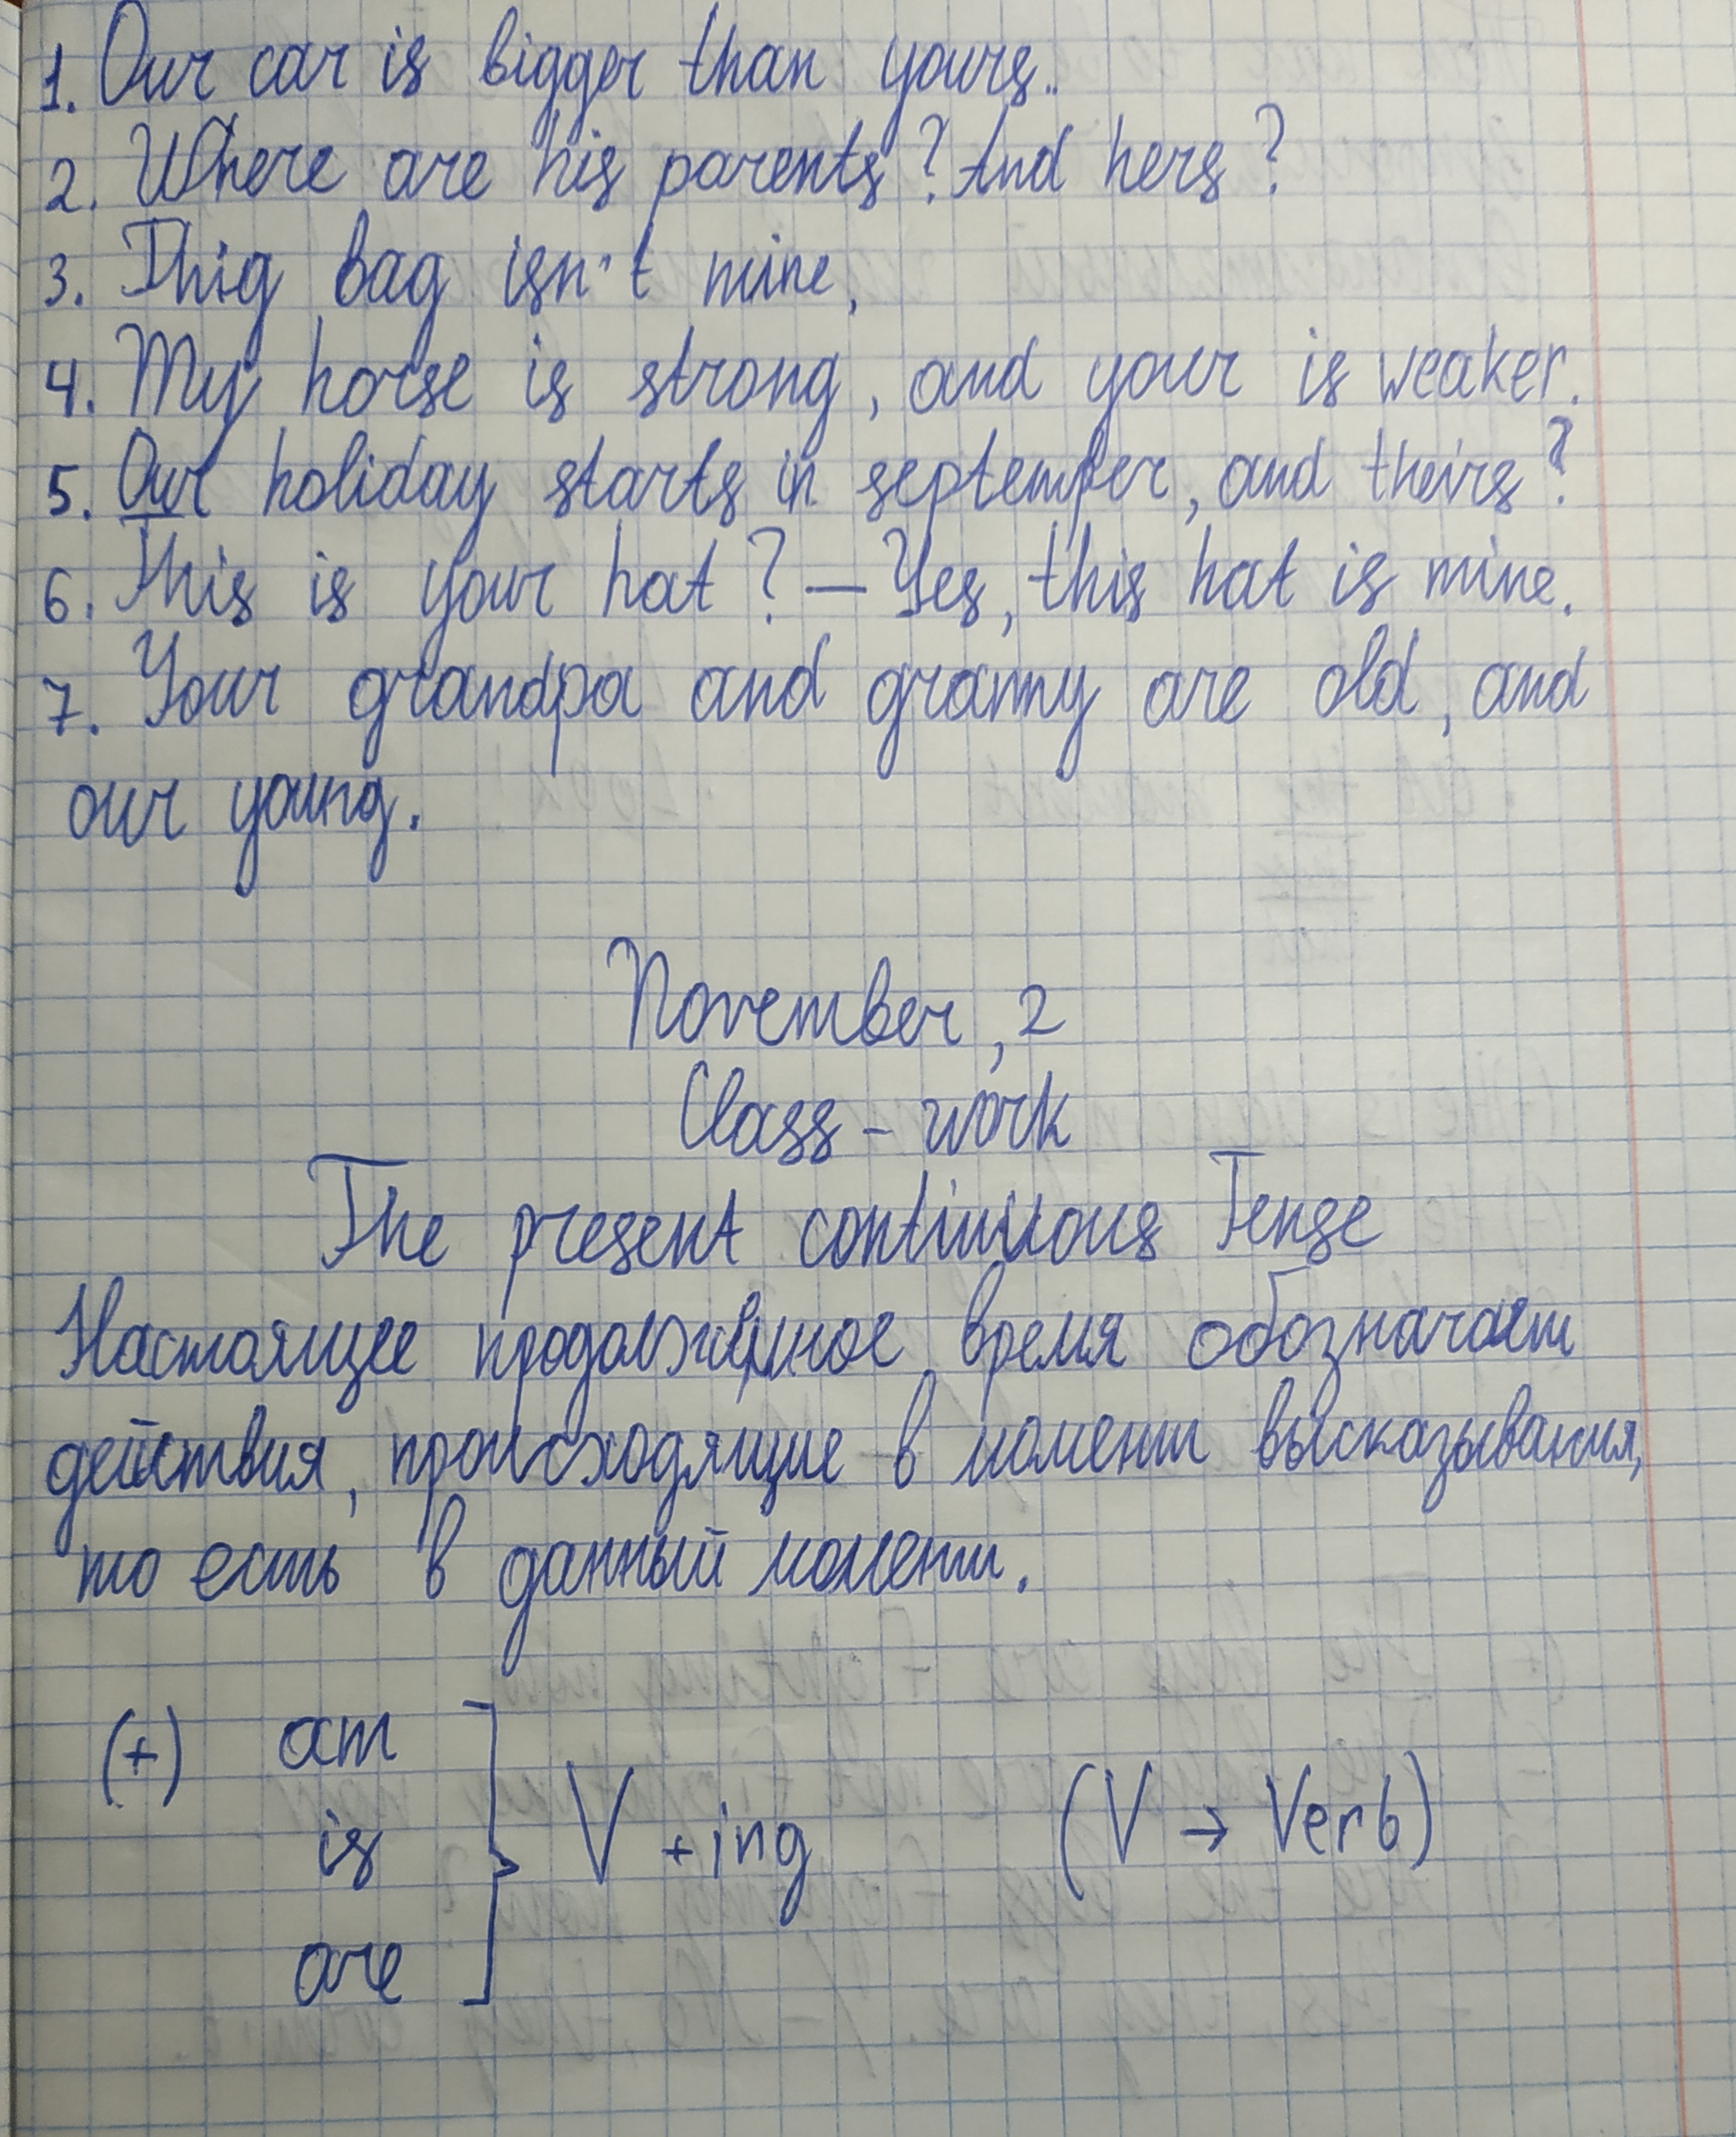 1. Our car is bigger than yours..
2. Where are his parents? And hers?
3. This bag isn't mine,
4. My horse is strong, and your is weaker.
5. Our holiday starts in september, and theirs?
6. This is your hat? – Yes, this hat is mine.
7. Your grandpa and granny are old, and
our young.
November, 2
Class - work
The present continuous Tense
Настоящее продолженное время обозначает
действия, происходящие в момент высказывания,
то есть в данный момент.
(+) am
is V + ing (V → Verb)
are